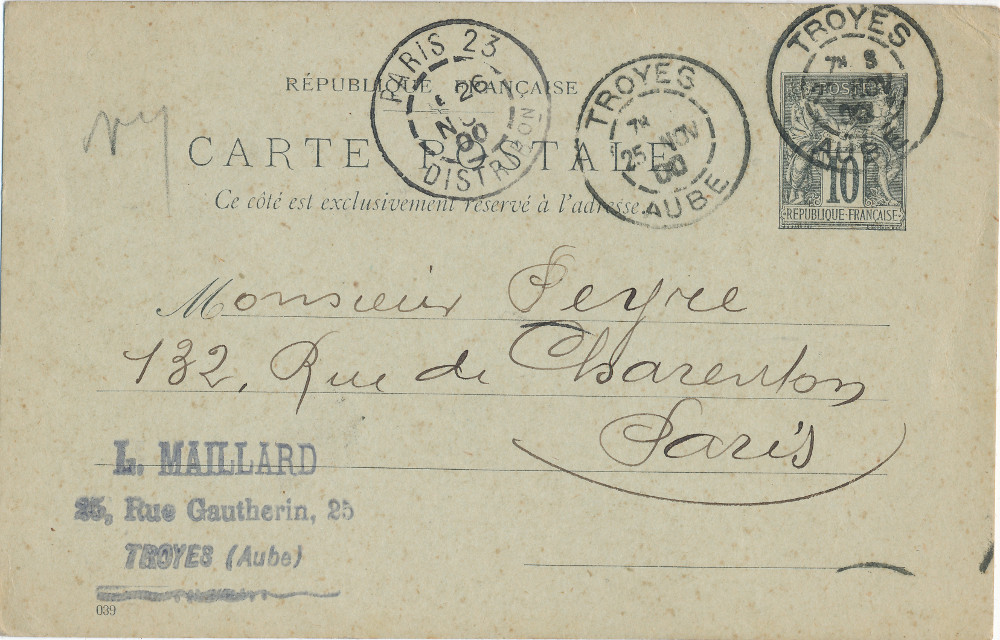 RÉPUBLIQUE FRANÇAISE
CARTE POSTALE
Ce côté est exclusivement réservé à l'adresse.
PARIS 23
26
NO
00
DISTRIBUTION
TROYES
7H
25 NOV
00
AUBE
TROYES
7H
NOV
AUBE
POSTES
10
RÉPUBLIQUE FRANÇAISE
Monsieur Peyre
132, Rue de Charenton
Paris
L. MAILLARD
25, Rue Gautherin, 25
TROYES (Aube)
039